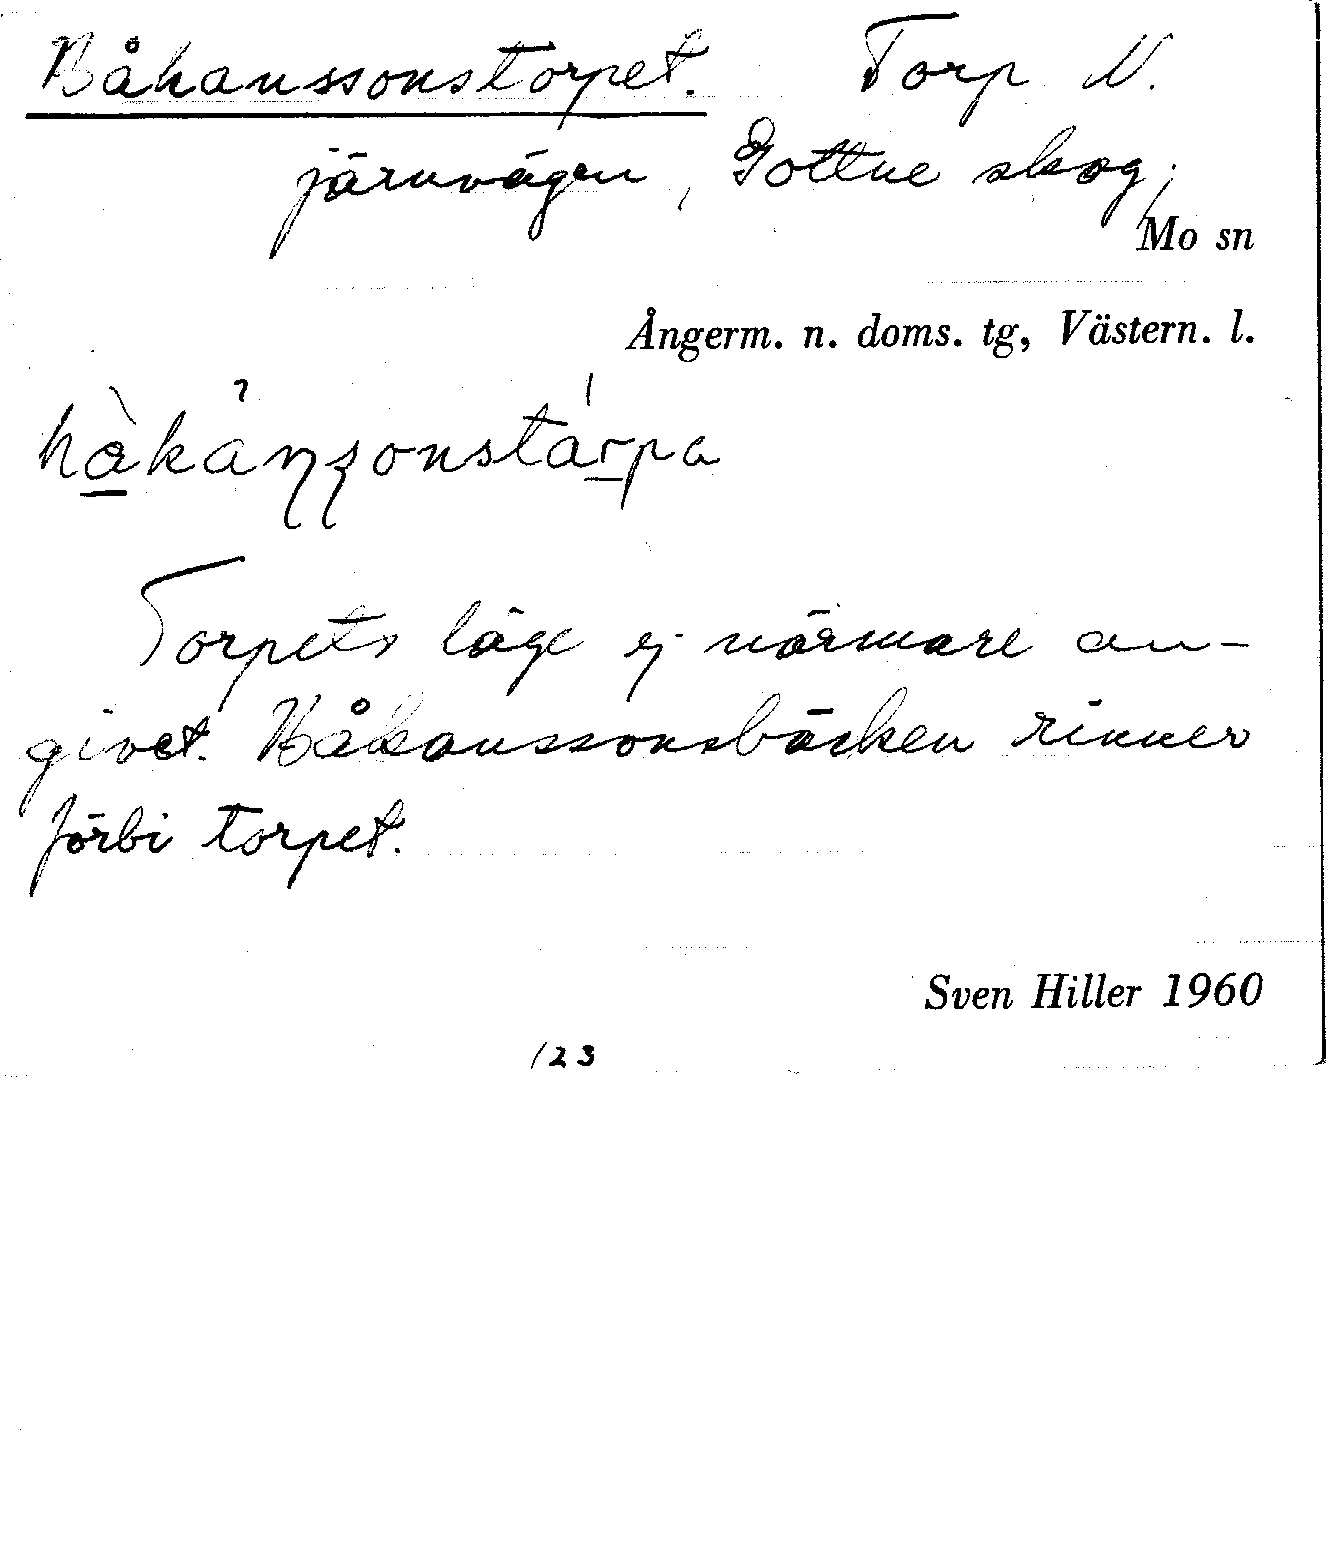 Håkanssonstorpet. Torp N.
järnvägen, Gottne skog,
Mo sn
Ångerm. n. doms. tg, Västern. l.
Torpets läge ej närmare an-
givet. Håkanssonsbäcken rinner
förbi torpet.
Sven Hiller 1960
123